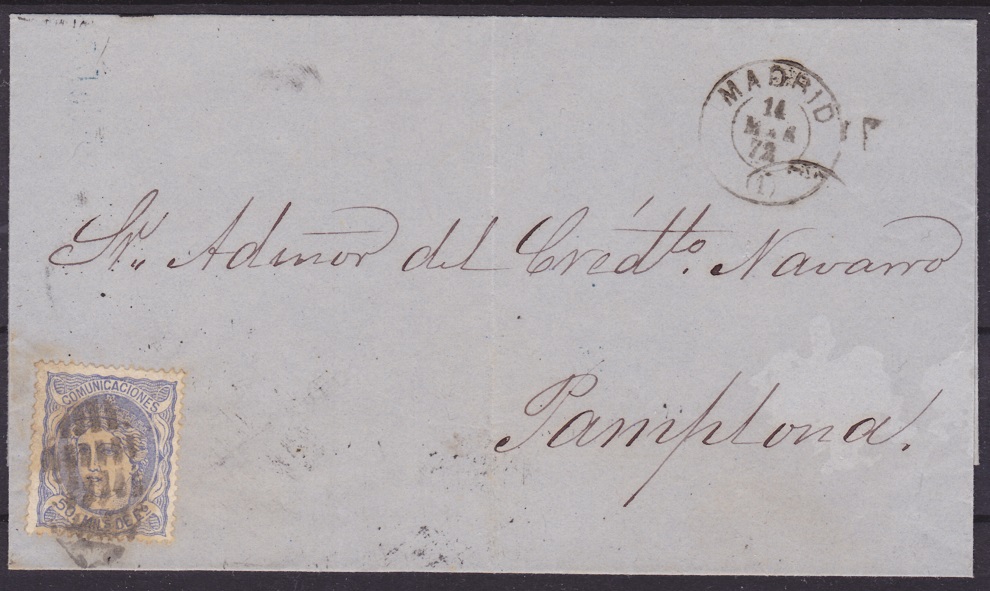 MADRID
14
MAR
72
(1)
Sr. Admor del Crédto. Navarro
Pamplona.
COMUNICACIONES
50 MILS DE Eo